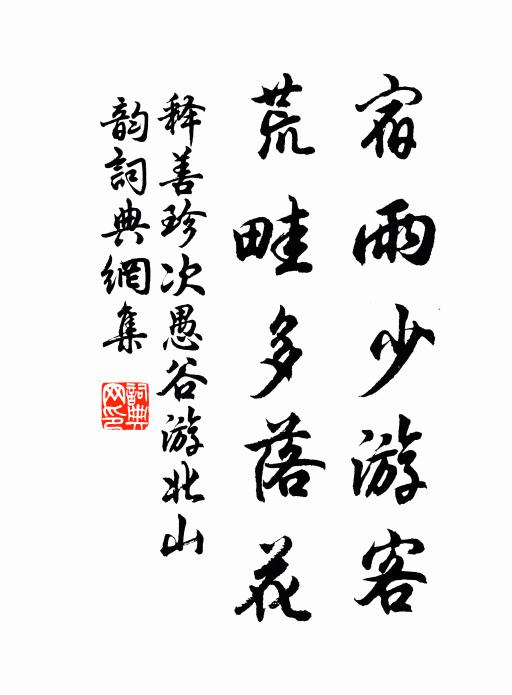 宿雨少游客
荒畦多落花
释善珍次愚谷游北山
韵詞典網集
詞典網印